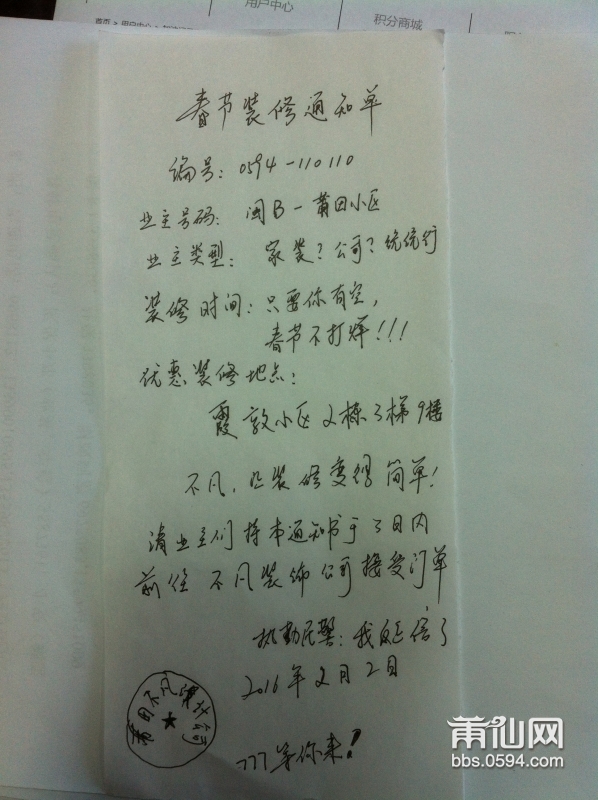 用户中心
积分商城
春节装修通知单
编号：0594-110110
业主号码：闽B-莆田小区
业主类型：家装？公司？统统行
装修时间：只要你有空，
春节不打烊！！！
优惠装修地点：
霞敦小区2栋3梯9楼
不凡，让装修变得简单！
请业主们持本通知书于3日内
前往不凡装饰公司接受订单
执勤民警：我反正信了
2016年2月2日
莆田不凡设计公司
777等你来！
莆仙网
bbs.0594.com